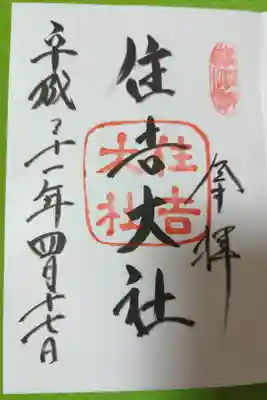 奉拝
住吉大社
住吉
大社
平成二十一年四月十七日